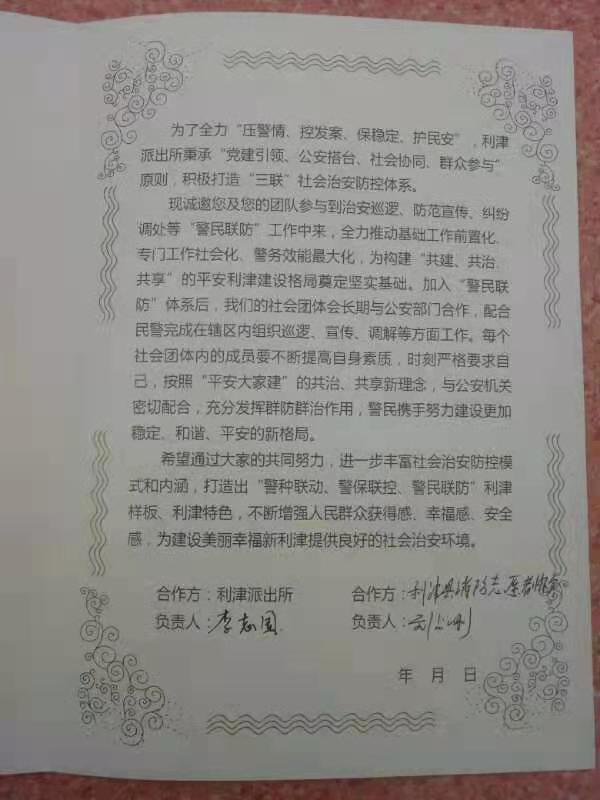 为了全力“压警情、控发案、保稳定、护民安”，利津
派出所秉承“党建引领、公安搭台、社会协同、群众参与”
原则，积极打造“三联”社会治安防控体系。
现诚邀您及您的团队参与到治安巡逻、防范宣传、纠纷
调处等“警民联防”工作中来，全力推动基础工作前置化、
专门工作社会化、警务效能最大化，为构建“共建、共治、
共享”的平安利津建设格局奠定坚实基础。加入“警民联
防”体系后，我们的社会团体会长期与公安部门合作，配合
民警完成在辖区内组织巡逻、宣传、调解等方面工作。每个
社会团体内的成员要不断提高自身素质，时刻严格要求自
己，按照“平安大家建”的共治、共享新理念，与公安机关
密切配合，充分发挥群防群治作用，警民携手努力建设更加
稳定、和谐、平安的新格局。
希望通过大家的共同努力，进一步丰富社会治安防控模
式和内涵，打造出“警种联动、警保联控、警民联防”利津
样板、利津特色，不断增强人民群众获得感、幸福感、安全
感，为建设美丽幸福新利津提供良好的社会治安环境。
合作方：利津派出所 合作方：利津县消防志愿者
负责人：李志国 负责人：
年 月 日